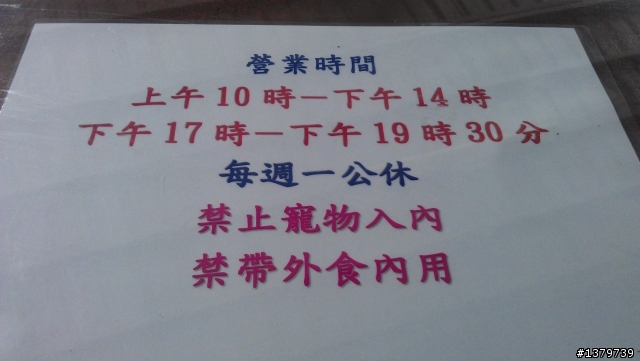 營業時間
上午 10 時－下午 14 時
下午 17 時－下午 19 時 30 分
每週一公休
禁止寵物入內
禁帶外食內用
#1379739